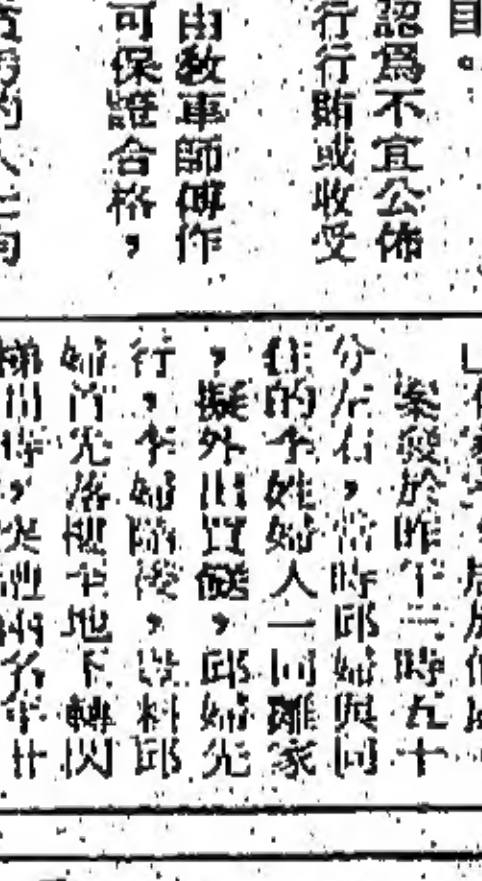 目。
認爲不宜公佈
行行賄或收受
由敎車師傅作
可保證合格，
的人士向
案發於昨午三時五十
分左右，當時邱婦與同
住的李姓婦人一同離家
，擬外出買餸，邱婦先
行，李婦隨後，詎料邱
婦首先落樓至地下轉閃
梯間時，突遭兩名年廿